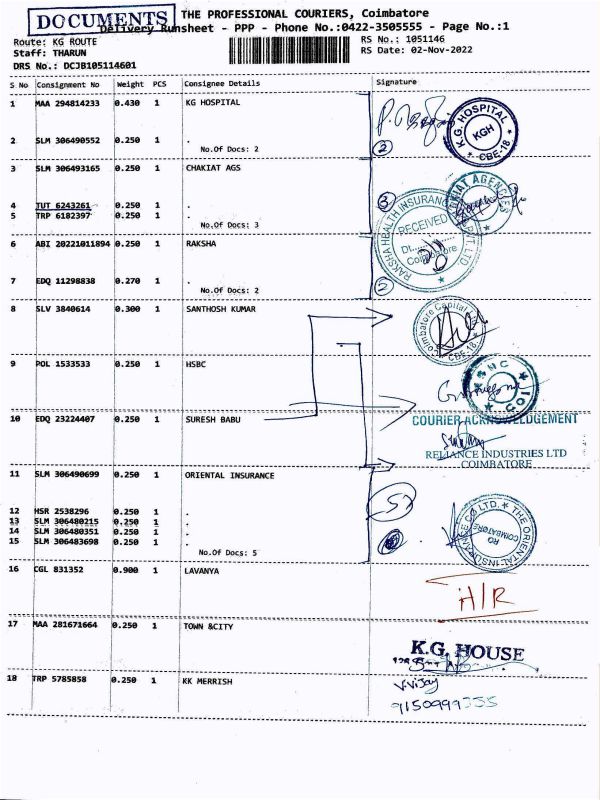 DOCUMENTS
THE PROFESSIONAL COURIERS, Coimbatore
Delivery Runsheet - PPP - Phone No.:0422-3505555 - Page No.:1
Route: KG ROUTE
RS No.: 1051146
Staff: THARUN
RS Date: 02-Nov-2022
DRS No.: DCJB105114601
S No Consignment No Weight PCS Consignee Details Signature
1 MAA 294814233 0.430 1 KG HOSPITAL
K.G. HOSPITAL
KGH
CBE-18
2 SLM 306490552 0.250 1 .
No.Of Docs: 2
2
3 SLM 306493165 0.250 1 CHAKIAT AGS
4 TUT 6243261 0.250 1 .
3
5 TRP 6182397 0.250 1 .
No.Of Docs: 3
6 ABI 20221011894 0.250 1 RAKSHA
RAKSHA HEALTH INSURANCE PVT LTD
RECEIVED
Dt.
Coimbatore
7 EDQ 11298838 0.270 1 .
No.Of Docs: 2
2
8 SLV 3840614 0.300 1 SANTHOSH KUMAR
Coimbatore Capital
CBE-18
9 POL 1533533 0.250 1 HSBC
10 EDQ 23224407 0.250 1 SURESH BABU
COURIER ACKNOWLEDGEMENT
RELIANCE INDUSTRIES LTD
COIMBATORE
11 SLM 306490699 0.250 1 ORIENTAL INSURANCE
12 HSR 2538296 0.250 1 .
5
13 SLM 306480215 0.250 1 .
14 SLM 306480351 0.250 1 .
15 SLM 306483698 0.250 1 .
No.Of Docs: 5
THE ORIENTAL INSURANCE CO LTD.
RO
COIMBATORE
16 CGL 831352 0.900 1 LAVANYA
H/R
17 MAA 281671664 0.250 1 TOWN &CITY
K.G. HOUSE
18 TRP 5785858 0.250 1 KK MERRISH
V.Vijay